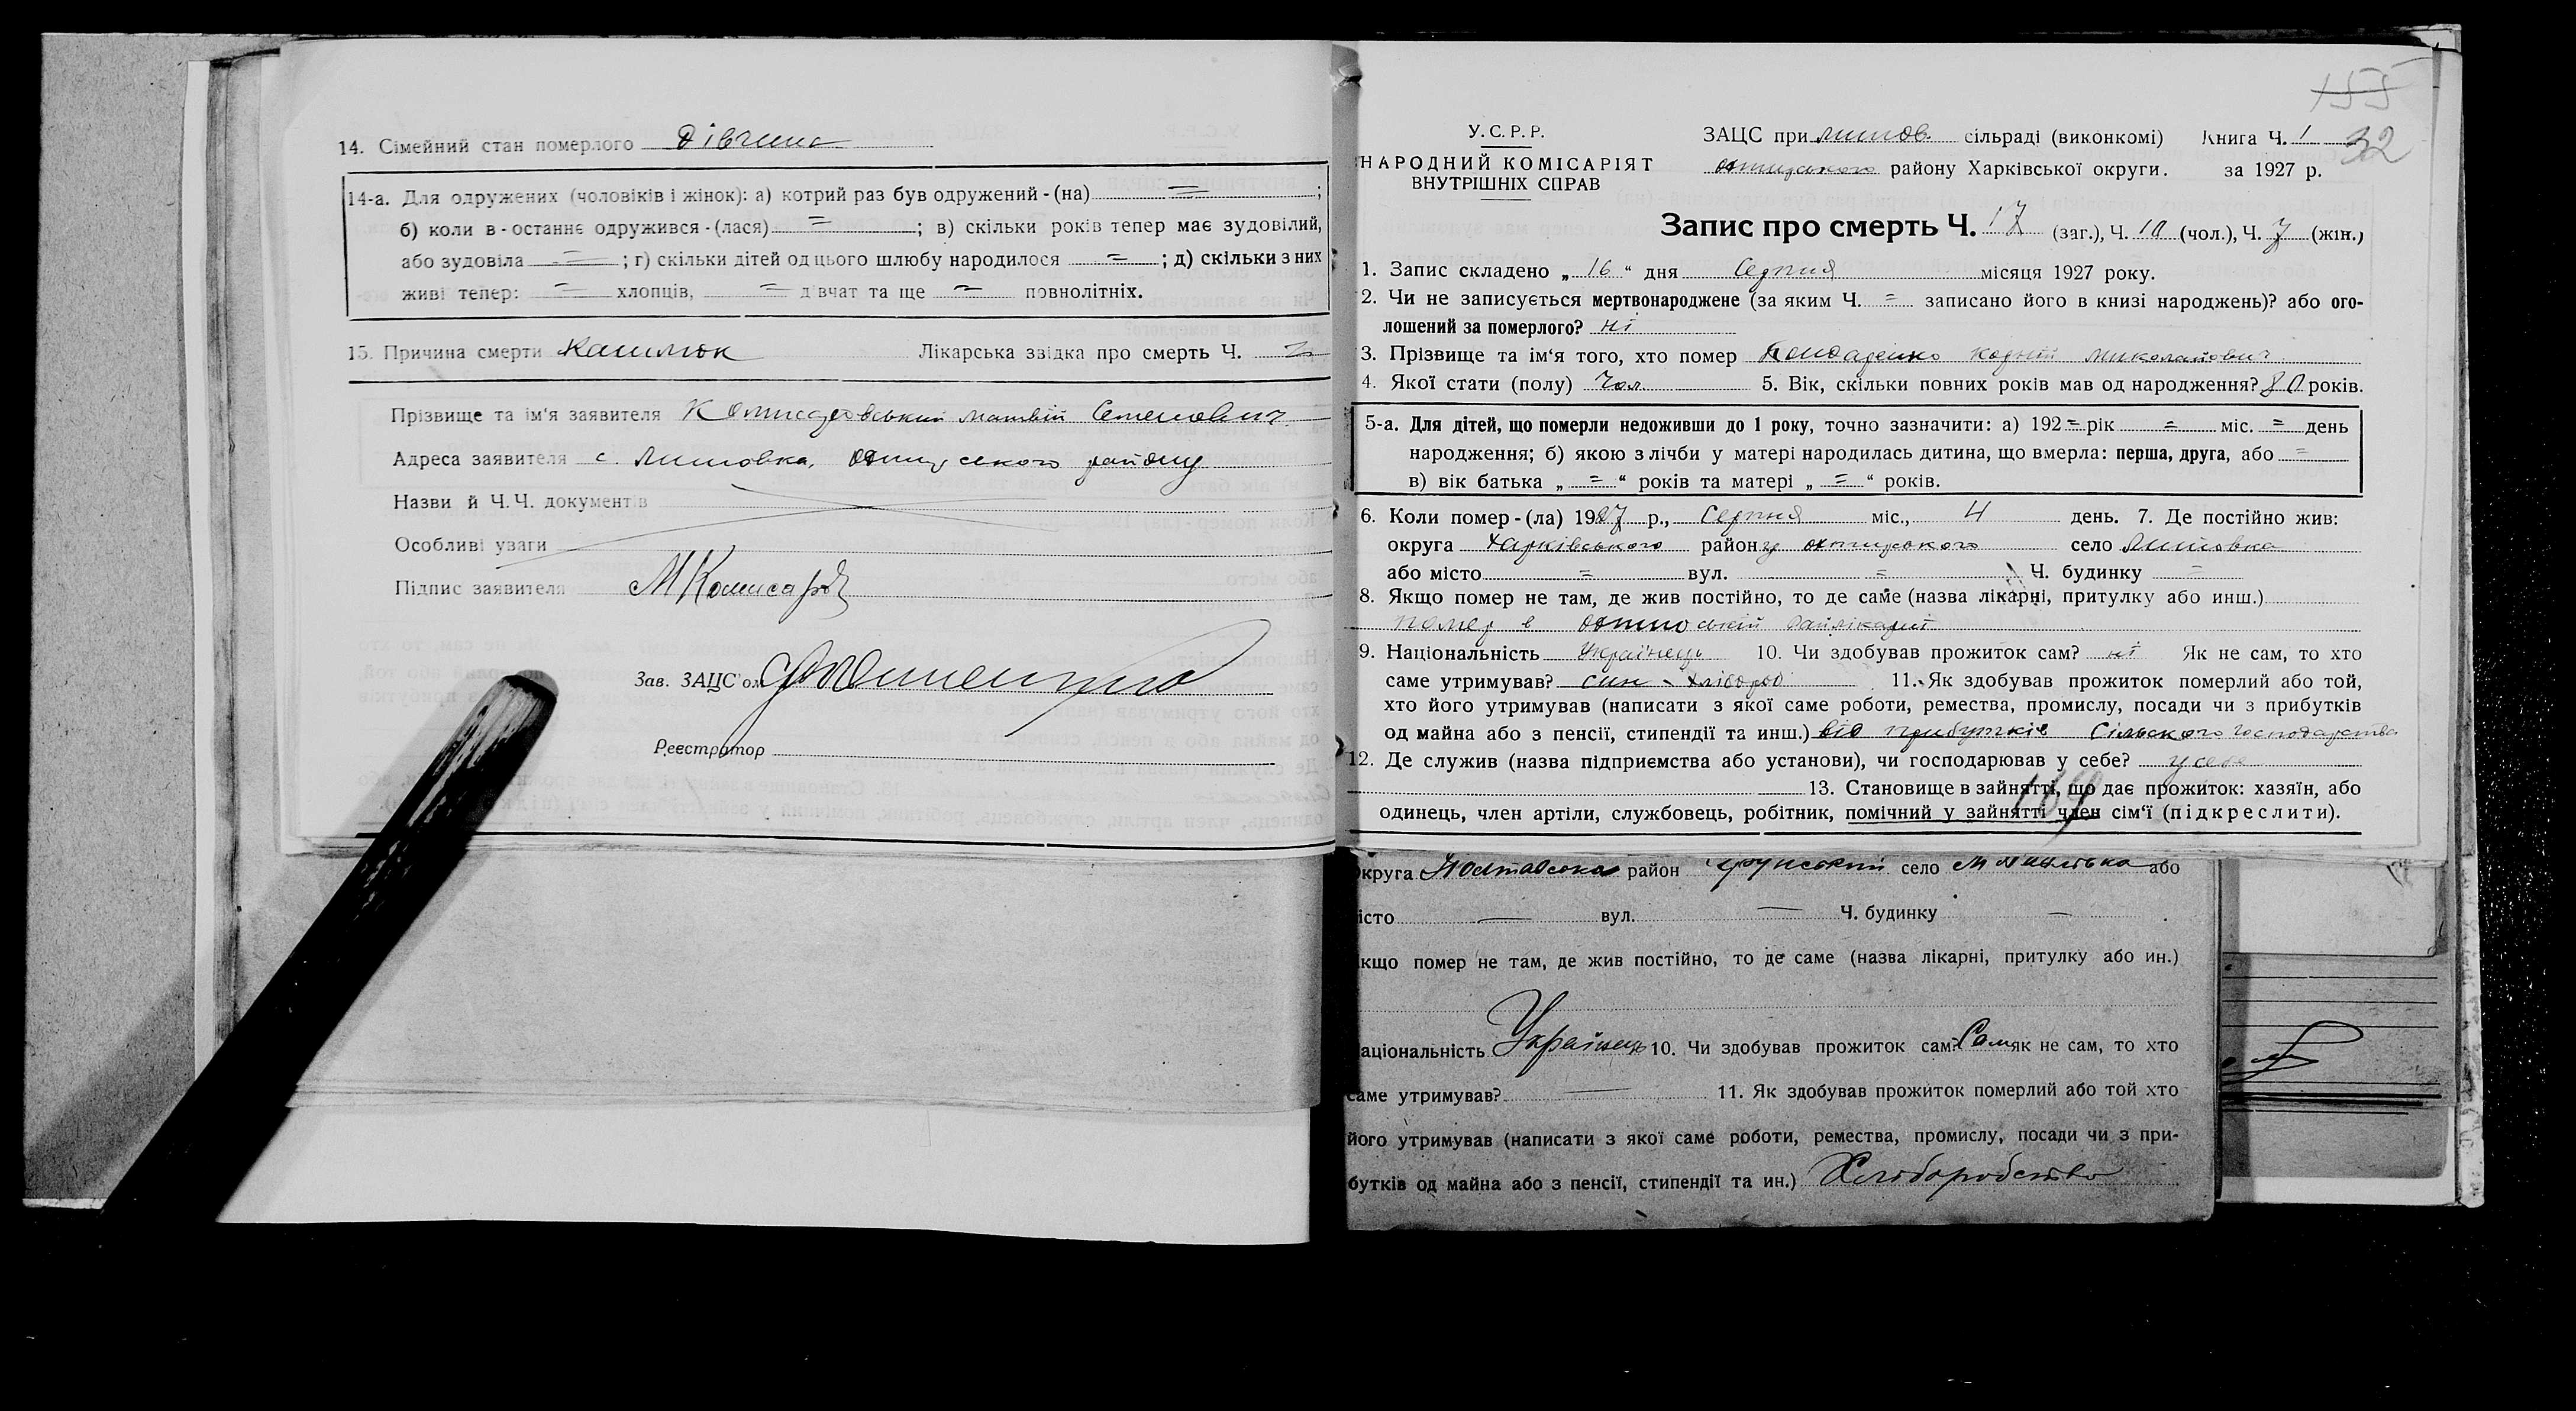 14. Сімейний стан померлого дівчина
14-а. Для одружених (чоловіків і жінок): а) котрий раз був одружений-(на) = ;
б) коли в-останнє одружився-(лася) = ; в) скільки років тепер має зудовілий,
або зудовіла = ; г) скільки дітей од цього шлюбу народилося = ; д) скільки з них
живі тепер: = хлопців, = дівчат та ще = повнолітніх.
15. Причина смерти Кашлюк Лікарська звідка про смерть Ч. =
Прізвище та ім'я заявителя Комисаровський Матвій Семенович
Адреса заявителя с. Литовка, Охтирського району
Назви й Ч.Ч. документів
Особливі уваги
Підпис заявителя МКомисаров
Зав. ЗАЦС'ом
Реєстратор
155
32
У.С.Р.Р.
НАРОДНИЙ КОМІСАРІЯТ
ВНУТРІШНІХ СПРАВ
ЗАЦС при Литов. сільраді (виконкомі) Книга Ч. 1
Охтирського району Харківської округи. за 1927 р.
Запис про смерть Ч. 17 (заг.), Ч. 10 (чол.), Ч. 7 (жін.)
1. Запис складено „ 16 “ дня Серпня місяця 1927 року.
2. Чи не записується мертвонароджене (за яким Ч. = записано його в книзі народжень)? або ого-
лошений за померлого? ні
3. Прізвище та ім'я того, хто помер Бондаренко Корній Миколайович
4. Якої стати (полу) Чол. 5. Вік, скільки повних років мав од народження? 80 років.
5-а. Для дітей, що померли недоживши до 1 року, точно зазначити: а) 192 = рік = міс. = день
народження; б) якою з лічби у матері народилась дитина, що вмерла: перша, друга, або =
в) вік батька „ = “ років та матері „ = “ років.
6. Коли помер-(ла) 1927 р., Серпня міс., 4 день. 7. Де постійно жив:
округа Харківського району Охтирського село Литовка
або місто = вул. = Ч. будинку =
8. Якщо помер не там, де жив постійно, то де саме (назва лікарні, притулку або инш.)
помер в райлікарні
9. Національність Українець 10. Чи здобував прожиток сам? ні Як не сам, то хто
саме утримував? син - хлібороб 11. Як здобував прожиток померлий або той,
хто його утримував (написати з якої саме роботи, ремества, промислу, посади чи з прибутків
од майна або з пенсії, стипендії та инш.) від прибутків Сільского господарства
12. Де служив (назва підприємства або установи), чи господарював у себе? у себе
13. Становище в зайнятті, що дає прожиток: хазяїн, або
одинець, член артіли, службовець, робітник, помічний у зайнятті член сім'ї (підкреслити).
169
круга Полтавська район село або
істо — вул. — Ч. будинку —
кщо помер не там, де жив постійно, то де саме (назва лікарні, притулку або ин.)
аціональність Українець 10. Чи здобував прожиток сам? Сам як не сам, то хто
саме утримував? — 11. Як здобував прожиток померлий або той хто
його утримував (написати з якої саме роботи, ремества, промислу, посади чи з при-
бутків од майна або з пенсії, стипендії та ин.) Хліборобство